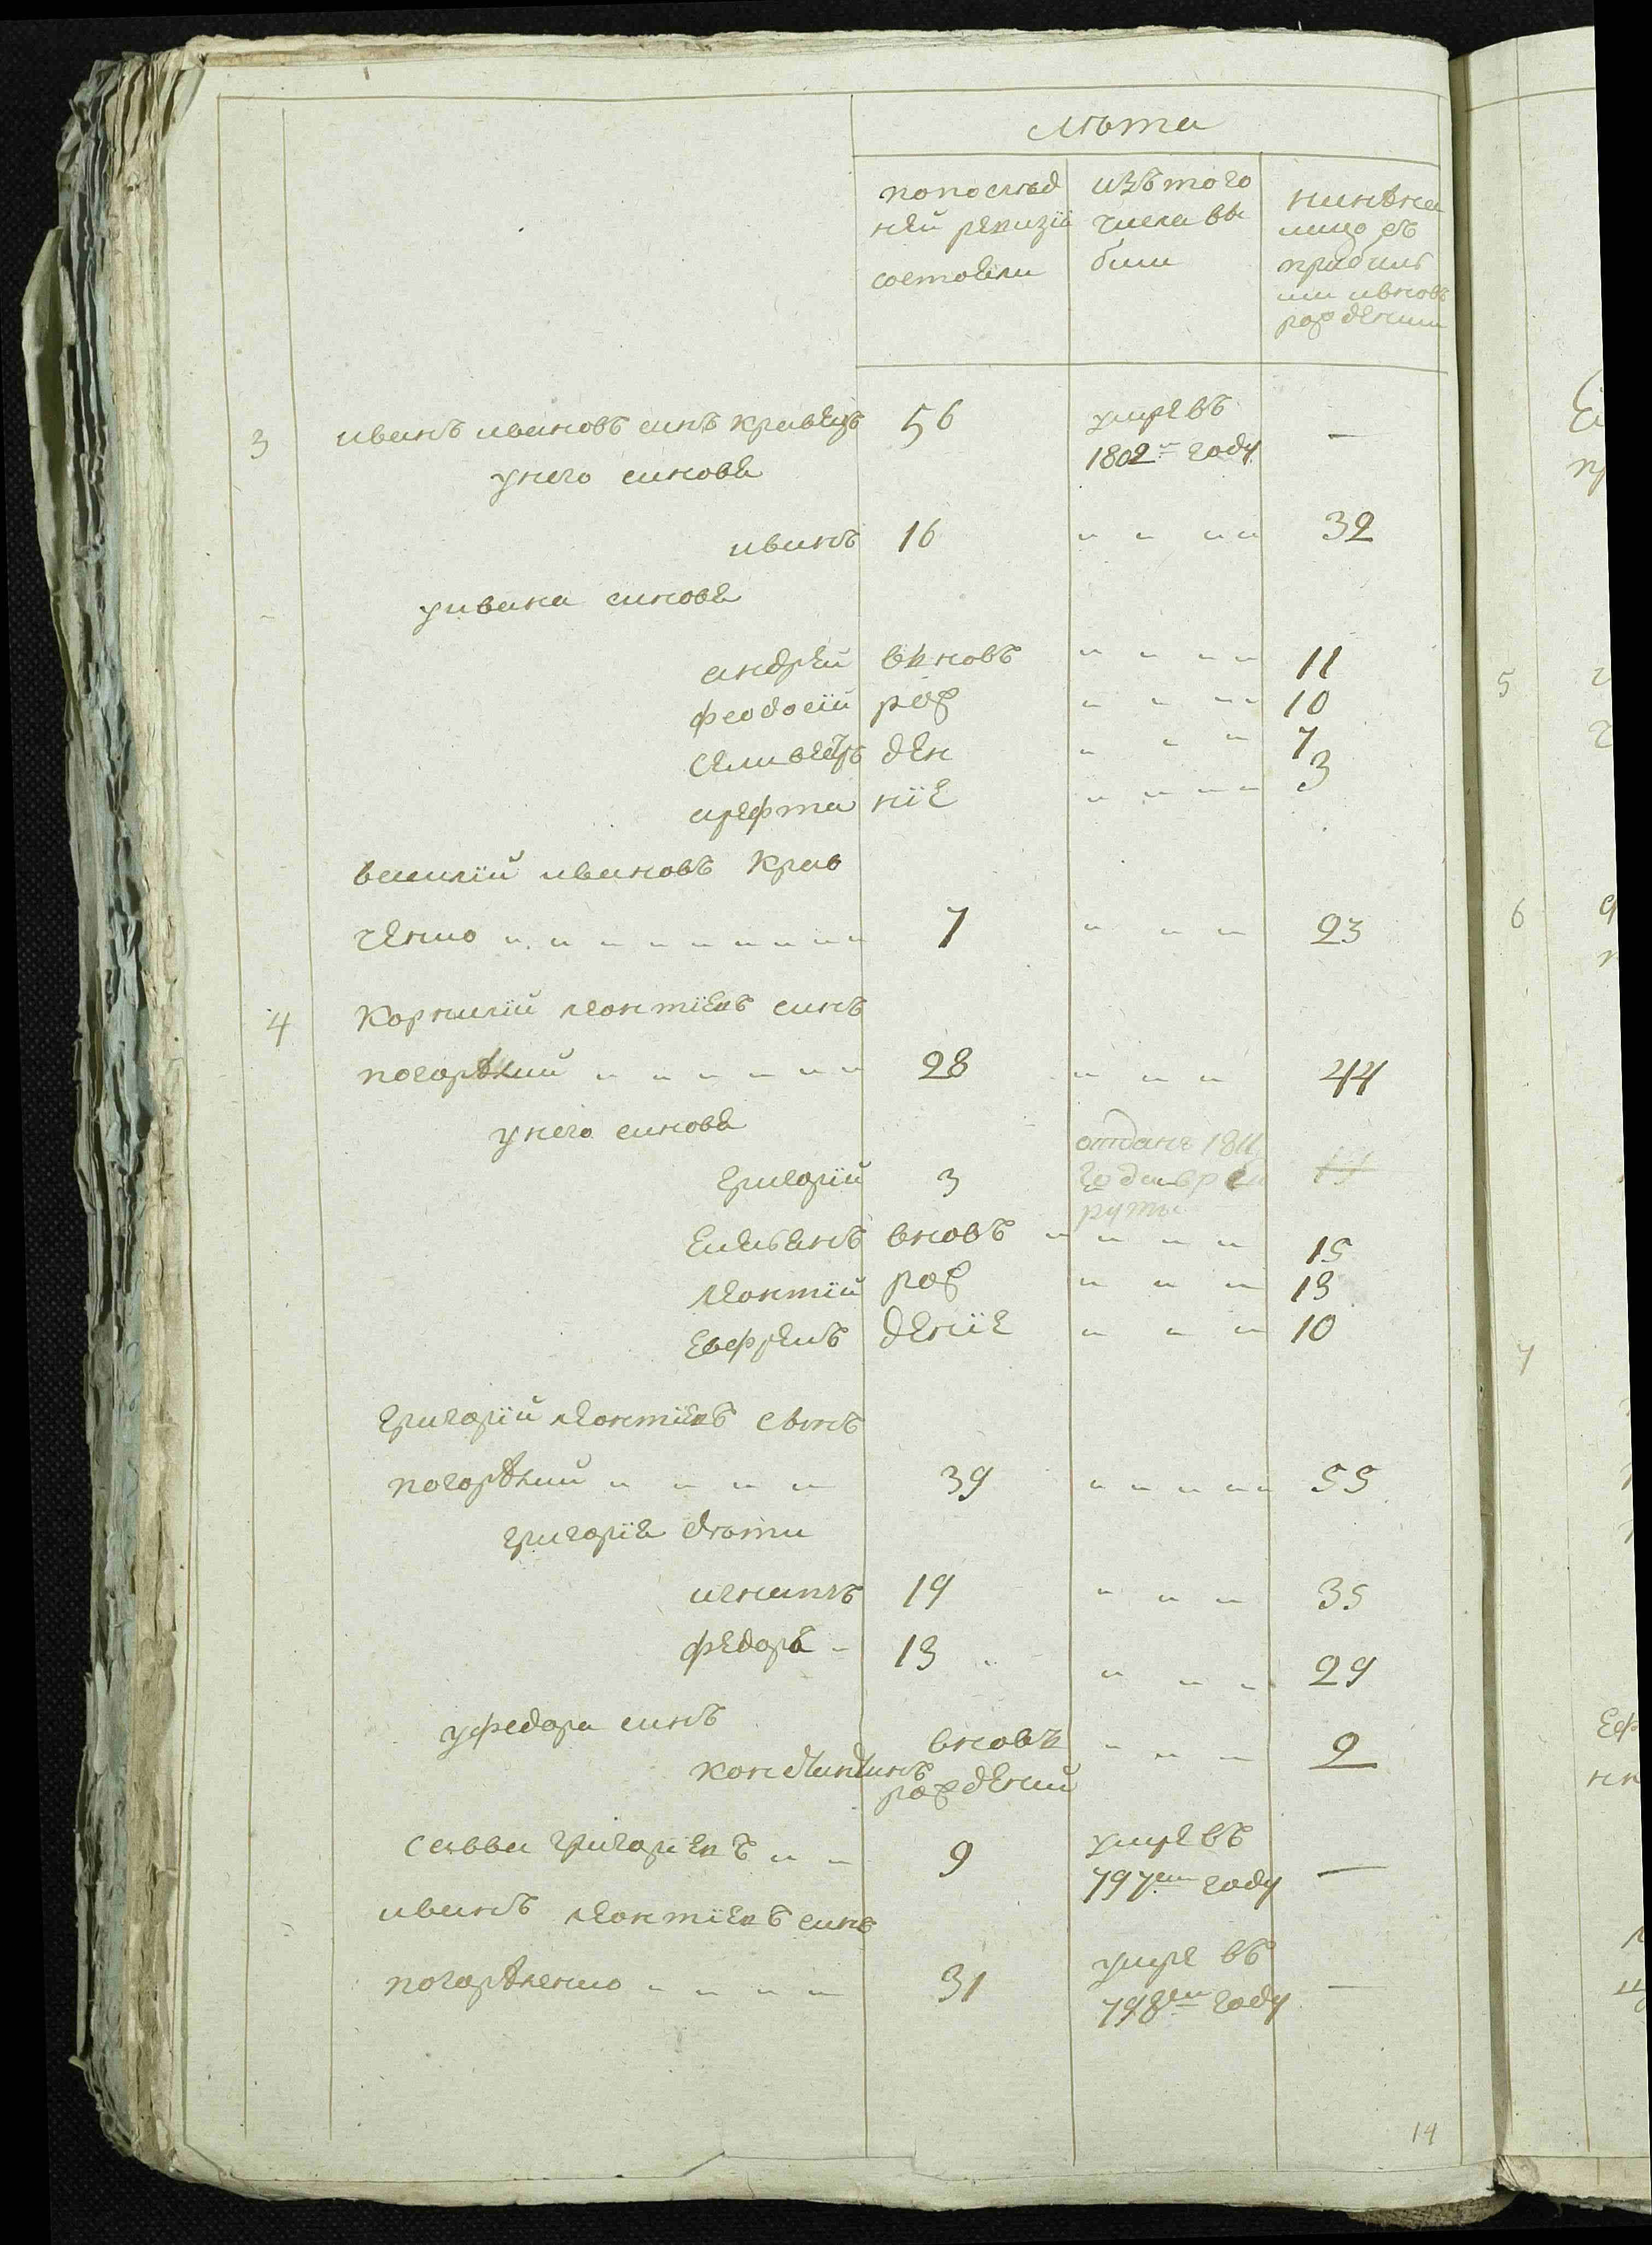 лѣта
по послѣд
ней ревизіи
состояли
изъ того
числа вы
били
нинѣ на
лицо съ
прибыв
ши и вновь
рожденни
3 иванъ ивановъ синъ кравецъ 56 умре въ
1802м году —
у него синовя
иванъ 16 32
у ивана синовя
андрей вновъ 11
феодосій рож 10
Селивестръ ден 7
арефта ніе 3
василій ивановъ Крав
ченко 7 23
4 Корнилій леонтіевъ синъ
погорѣлий 28 44
у него синовя
отданъ 1811
григорій 3 года в рек 19
руты
Емельянъ вновъ 15
леонтій рож 13
Евфремъ деніе 10
григорій леонтіевъ сынъ
погорѣлий 39 55
григорія дѣти
игнатъ 19 35
федоръ 13 29
у федора синъ
констянтинъ вновъ 2
рожденій
савва григоріевъ 9 умре въ
797м году —
иванъ леонтіевъ синъ
погорѣленко 31 умре въ
798м году —
14
5
6
7